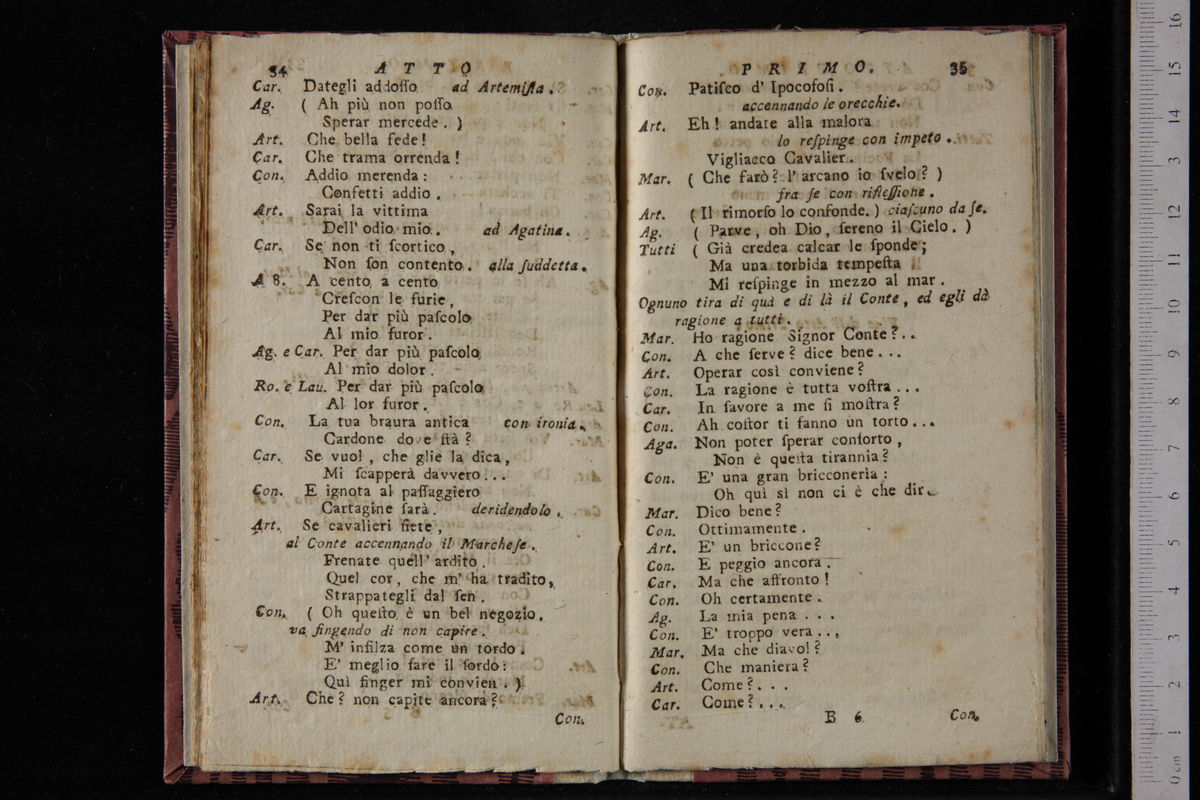 34 ATTO
Car. Dategli addoſſo ad Artemiſia.
Ag. ( Ah più non poſſo
Sperar mercede. )
Art. Che bella fede!
Car. Che trama orrenda!
Con. Addio merenda:
Confetti addio.
Art. Sarai la vittima
Dell' odio mio. ad Agatina.
Car. Se non ti ſcortico,
Non ſon contento. alla ſuddetta.
A 8. A cento a cento
Creſcon le furie,
Per dar più paſcolo
Al mio furor.
Ag. e Car. Per dar più paſcolo
Al mio dolor.
Ro. e Lau. Per dar più paſcolo
Al lor furor.
Con. La tua braura antica con ironia.
Cardone dove ſtà?
Car. Se vuol, che glie la dica,
Mi ſcapperà davvero...
Con. E ignota al paſſaggiero
Cartagine ſarà. deridendolo.
Art. Se cavalieri ſiete,
al Conte accennando il Marcheſe.
Frenate quell' ardito.
Quel cor, che m' ha tradito,
Strappategli dal ſen.
Con. ( Oh queſto è un bel negozio.
va fingendo di non capire.
M' infilza come un tordo.
E' meglio fare il ſordo:
Quì finger mi convien. )
Art. Che? non capite ancora?
Con.
PRIMO. 35
Con. Patiſco d' Ipocofoſi.
accennando le orecchie.
Art. Eh! andate alla malora
lo reſpinge con impeto.
Vigliacco Cavalier.
Mar. ( Che farò? l' arcano io ſvelo? )
fra ſe con rifleſſione.
Art. ( Il rimorſo lo confonde. ) ciaſcuno da ſe.
Ag. ( Parve, oh Dio, ſereno il Cielo. )
Tutti ( Già credea calcar le ſponde;
Ma una torbida tempeſta
Mi reſpinge in mezzo al mar.
Ognuno tira di quà e di là il Conte, ed egli dà
ragione a tutti.
Mar. Ho ragione Signor Conte?..
Con. A che ſerve? dice bene...
Art. Operar così conviene?
Con. La ragione è tutta voſtra...
Car. In favore a me ſi moſtra?
Con. Ah coſtor ti fanno un torto...
Aga. Non poter ſperar conforto,
Non è queſta tirannia?
Con. E' una gran bricconerìa:
Oh quì sì non ci è che dir.
Mar. Dico bene?
Con. Ottimamente.
Art. E' un briccone?
Con. E peggio ancora.
Car. Ma che affronto!
Con. Oh certamente.
Ag. La mia pena...
Con. E' troppo vera...
Mar. Ma che diavol?
Con. Che maniera?
Art. Come?...
Car. Come?...
B 6 Con.
0 cm 1 2 3 4 5 6 7 8 9 10 11 12 3 14 15 16